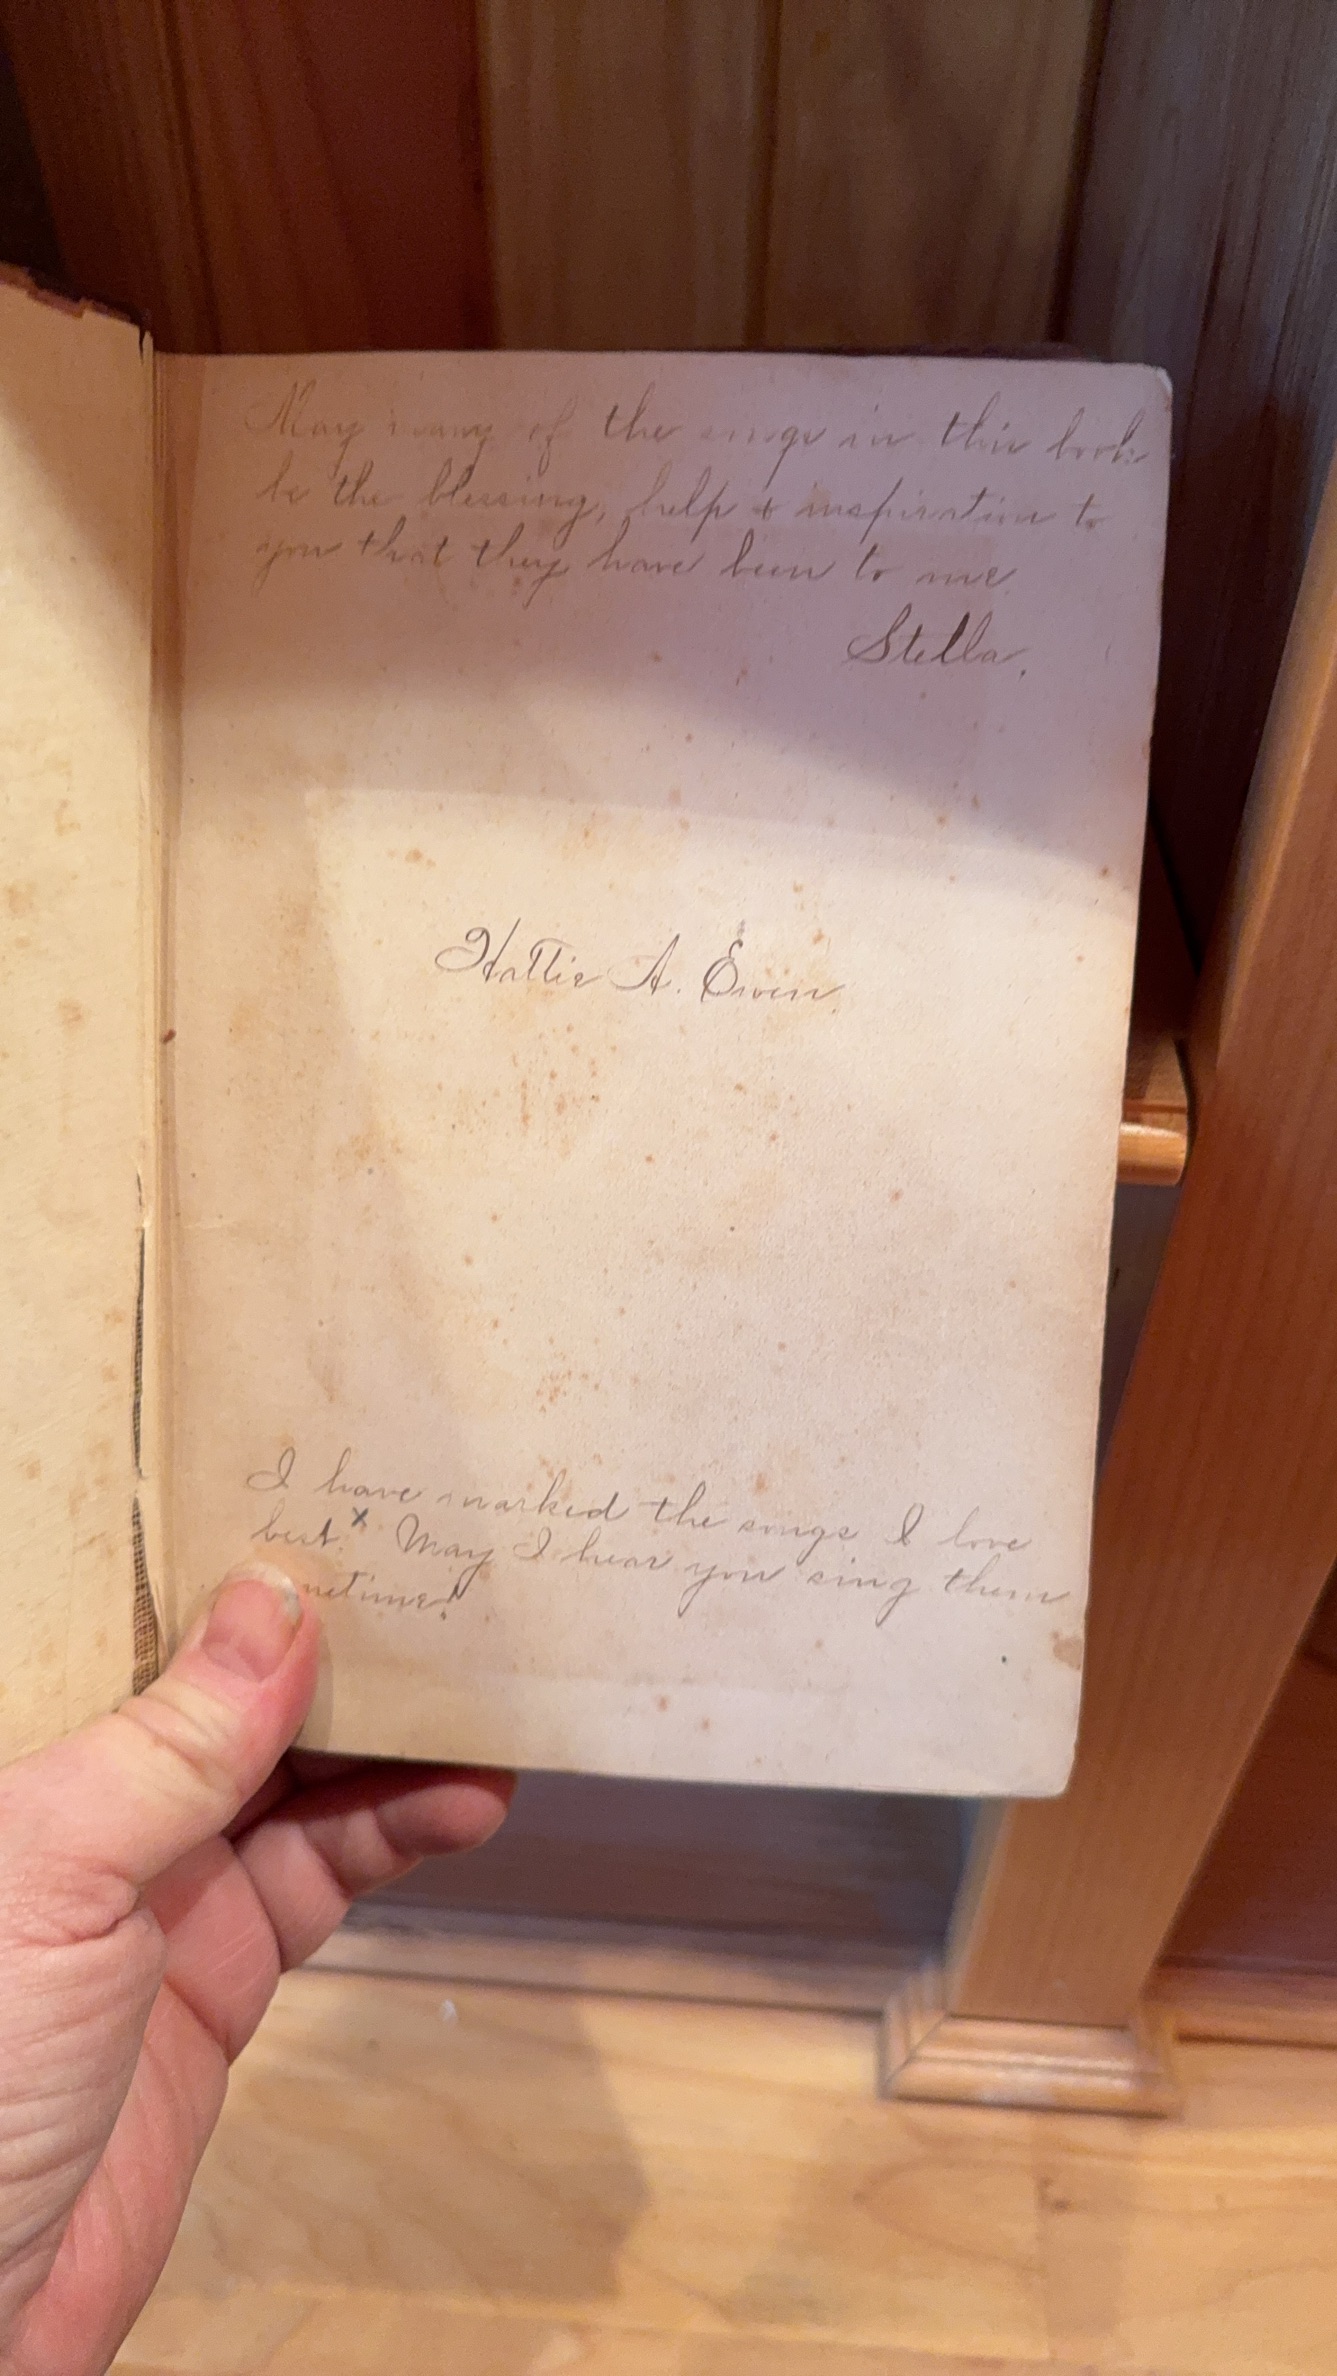 May many of the songs in this book
be the blessing, help & inspiration to
you that they have been to me.
Stella.
Hattie A. Ewen
I have marked the songs I love
best. x May I hear you sing them
netime!